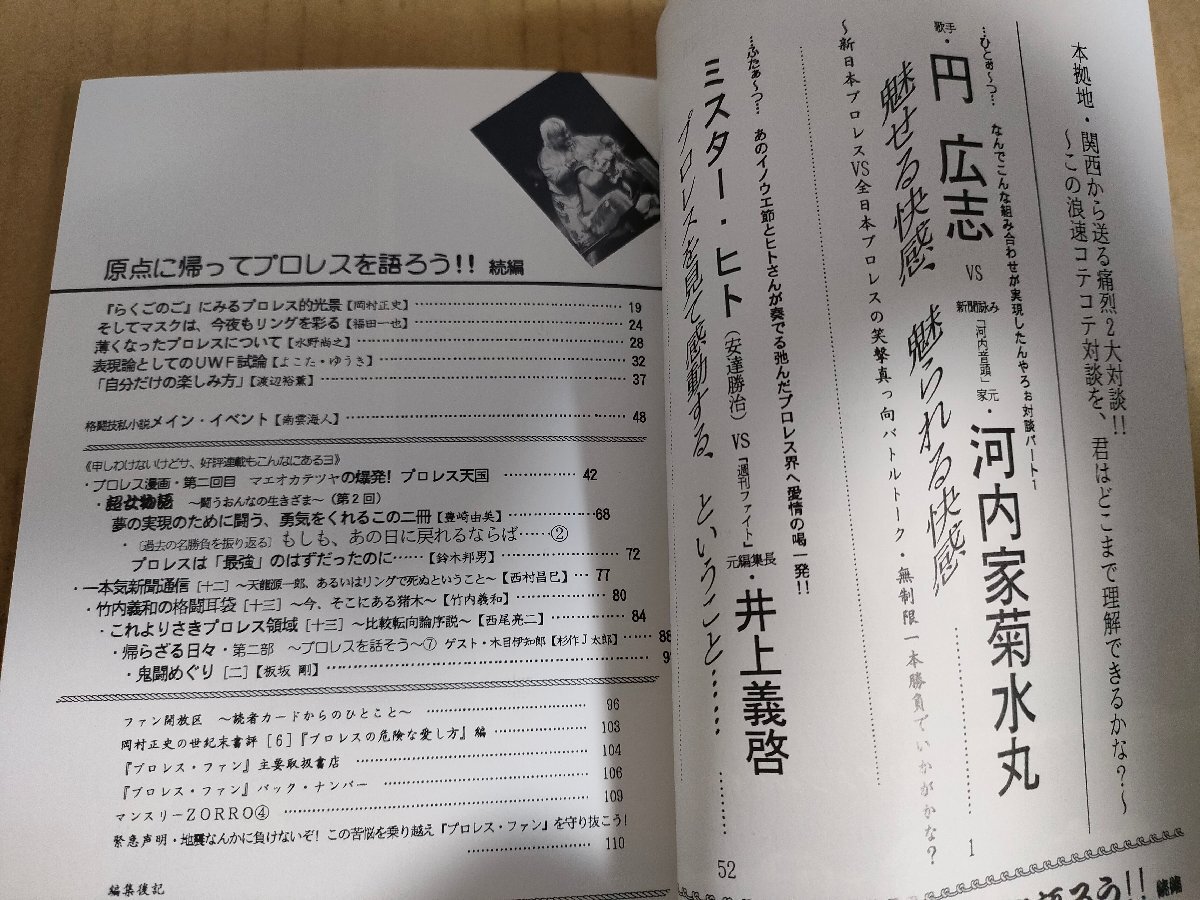 本拠地・関西から送る痛烈2大対談!!
〜この浪速コテコテ対談を、君はどこまで理解できるかな?〜
…ひとぉ〜つ… なんでこんな組み合わせが実現したんやろぉ対談パート1
歌手・円 広志 VS 新聞詠み「河内音頭」家元・河内家菊水丸
魅せる快感、魅られる快感 ……… 1
〜新日本プロレスVS全日本プロレスの笑撃真っ向バトルトーク・無制限一本勝負でいかがかな?
…ふたぁ〜つ… あのイノウエ節とヒトさんが奏でる弛んだプロレス界へ愛情の喝一発!!
ミスター・ヒト(安達勝治) VS『週刊ファイト』元編集長・井上義啓
プロレスを見て感動する、ということ…… ……… 52
原点に帰ってプロレスを語ろう!! 続編
『らくごのご』にみるプロレス的光景【岡村正史】 19
そしてマスクは、今夜もリングを彩る【福田一也】 24
薄くなったプロレスについて【水野尚之】 28
表現論としてのUWF試論【よこた・ゆうき】 32
「自分だけの楽しみ方」【渡辺裕薫】 37
格闘技私小説メイン・イベント【南雲海人】 48
《申しわけないけどサ、好評連載もこんなにあるヨ》
・プロレス漫画・第二回目 マエオカテツヤの爆発! プロレス天国 42
・超女物語 〜闘うおんなの生きざま〜(第2回)
夢の実現のために闘う、勇気をくれるこの二冊【豊崎由美】 68
・[過去の名勝負を振り返る] もしも、あの日に戻れるならば……②
プロレスは「最強」のはずだったのに……【鈴木邦男】 72
・一本気新聞通信[十二]〜天龍源一郎、あるいはリングで死ぬということ〜【西村昌巳】 77
・竹内義和の格闘耳袋[十三]〜今、そこにある猪木〜【竹内義和】 80
・これよりさきプロレス領域[十三]〜比較転向論序説〜【西尾亮二】 84
・帰らざる日々・第二部 〜プロレスを話そう〜⑦ ゲスト・木目伊知郎【杉作J太郎】 88
・鬼闘めぐり[二]【板坂 剛】 9
ファン開放区 〜読者カードからのひとこと〜 96
岡村正史の世紀末書評[6]『プロレスの危険な愛し方』編 103
『プロレス・ファン』主要取扱書店 104
『プロレス・ファン』バック・ナンバー 106
マンスリーZORRO④ 109
緊急声明・地震なんかに負けないぞ! この苦悩を乗り越え『プロレス・ファン』を守り抜こう!
110
編集後記
語ろう!! 続編